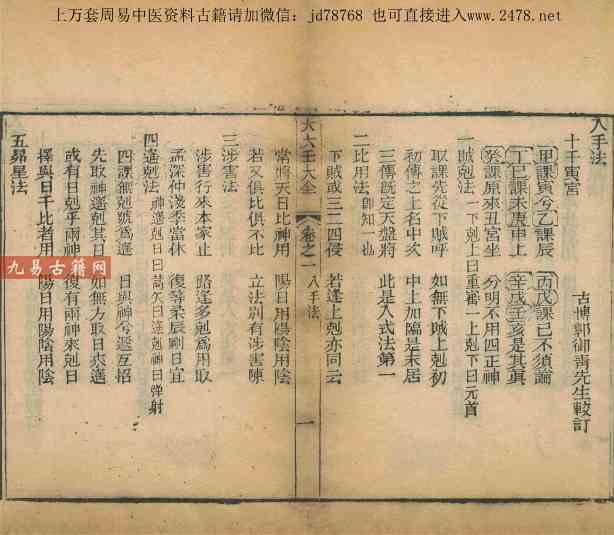 上万套周易中医资料古籍请加微信：jd78768 也可直接进入www.2478.net
入手法
古博郭御青先生較訂
十干寅宮
甲課寅兮乙課辰　丙戊課巳不須論
丁巳課未庚申上　辛戌壬亥是其眞
癸課原來丑宮坐　分明不用四正神
一賊剋法 一下剋上曰重審一上剋下曰元首
取課先從下賊呼　如無下賊上剋初
初傳之上名中次　中上加臨是末居
三傳旣定天盤將　此是入式法第一
二比用法 卽知一也
下賊或三二四侵　若逢上剋亦同云
大六壬大全　卷之一　入手法　一
常將天日比神用　陽日用陽陰用陰
若又俱比俱不比　立法別有涉害陳
三涉害法
涉害行來本家止　路逢多剋爲用取
孟深仲淺季當休　復等柔辰剛日宜
四遙剋法 神遙剋日曰蒿矢日遙剋神曰弹射
四課無剋號爲遙　日與神兮遞互招
先取神遙剋其日　如無方取日來遙
或有日剋乎兩神　復有兩神來剋日
擇與日干比者用　陽日用陽陰用陰
五昴星法
九易古籍网